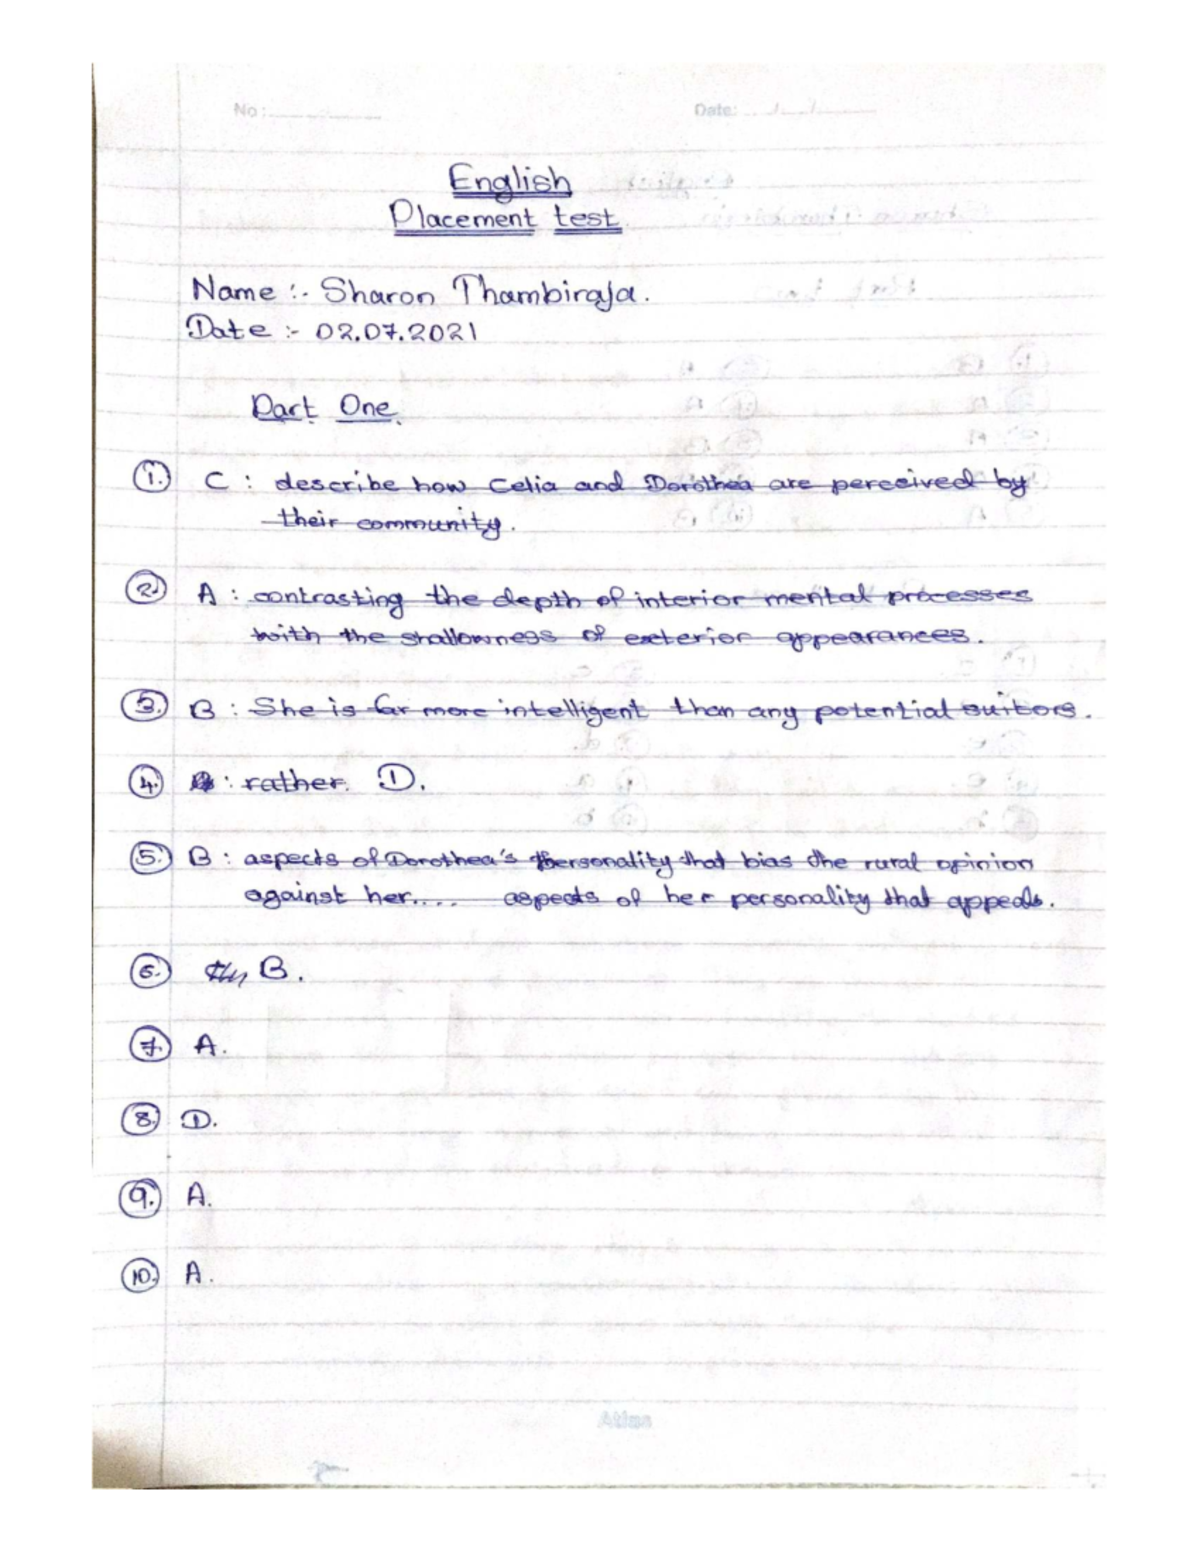 No: Date: / /
English
Placement test.
Name :- Sharon Thambiraja.
Date :- 02.07.2021
Part One.
1. C : describe how Celia and Dorothea are perceived by
their community.
2. A : contrasting the depth of interior mental processes
with the shallowness of exterior appearances.
3. B : She is far more intelligent than any potential suitors.
4. : rather. D.
5. B : aspects of Dorothea's personality that bias the rural opinion
against her.... aspects of her personality that appeals.
6. B.
7. A.
8. D.
9. A.
10. A.
Atlas